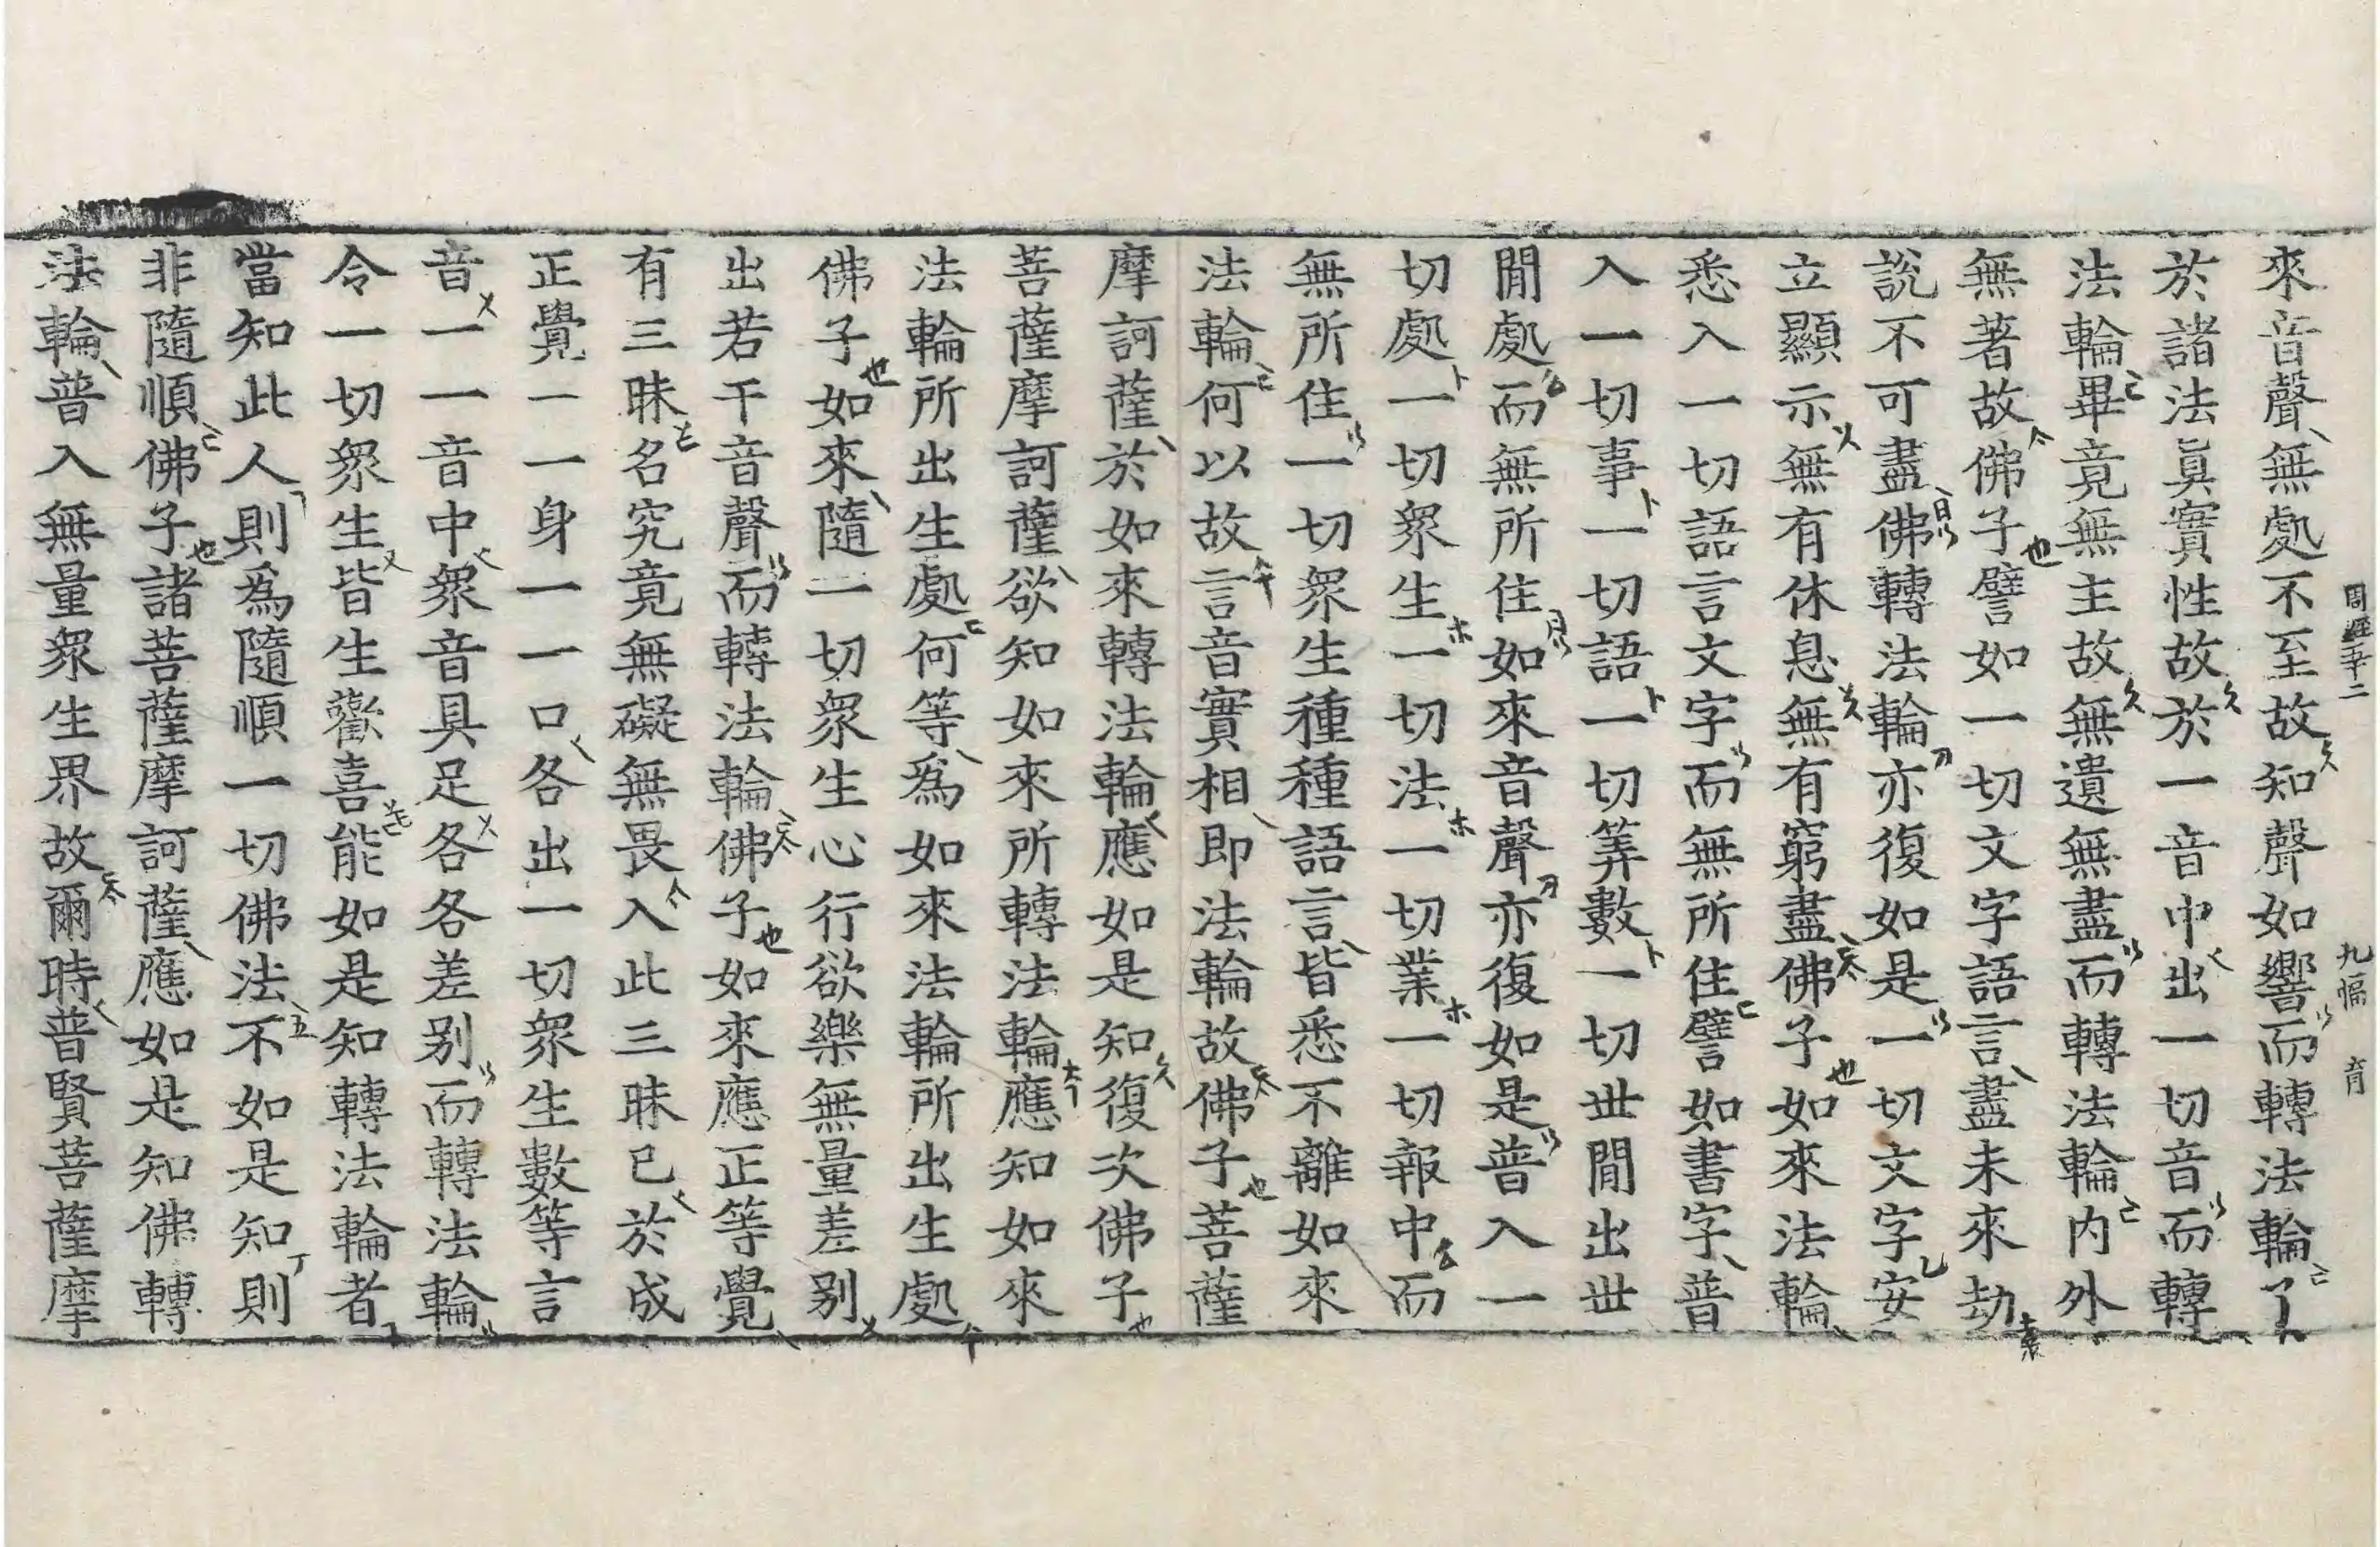 周經五十二 九幅 育
來音聲無處不至故知聲如響而轉法輪了
於諸法眞實性故於一音中出一切音而轉
法輪畢竟無主故無遺無盡而轉法輪内外
無著故佛子譬如一切文字語言盡未來劫
說不可盡佛轉法輪亦復如是一切文字安
立顯示無有休息無有窮盡佛子如來法輪
悉入一切語言文字而無所住譬如書字普
入一切事一切語一切筭數一切世間出世
間處而無所住如來音聲亦復如是普入一
切處一切衆生一切法一切業一切報中而
無所住一切衆生種種語言皆悉不離如來
法輪何以故言音實相即法輪故佛子菩薩
摩訶薩於如來轉法輪應如是知復次佛子
菩薩摩訶薩欲知如來所轉法輪應知如來
法輪所出生處何等爲如來法輪所出生處
佛子如來隨一切衆生心行欲樂無量差别
出若干音聲而轉法輪佛子如來應正等覺
有三昧名究竟無礙無畏入此三昧已於成
正覺一一身一一口各出一切衆生數等言
音一一音中衆音具足各各差别而轉法輪
令一切衆生皆生歡喜能如是知轉法輪者
當知此人則爲隨順一切佛法不如是知則
非隨順佛子諸菩薩摩訶薩應如是知佛轉
法輪普入無量衆生界故爾時普賢菩薩摩